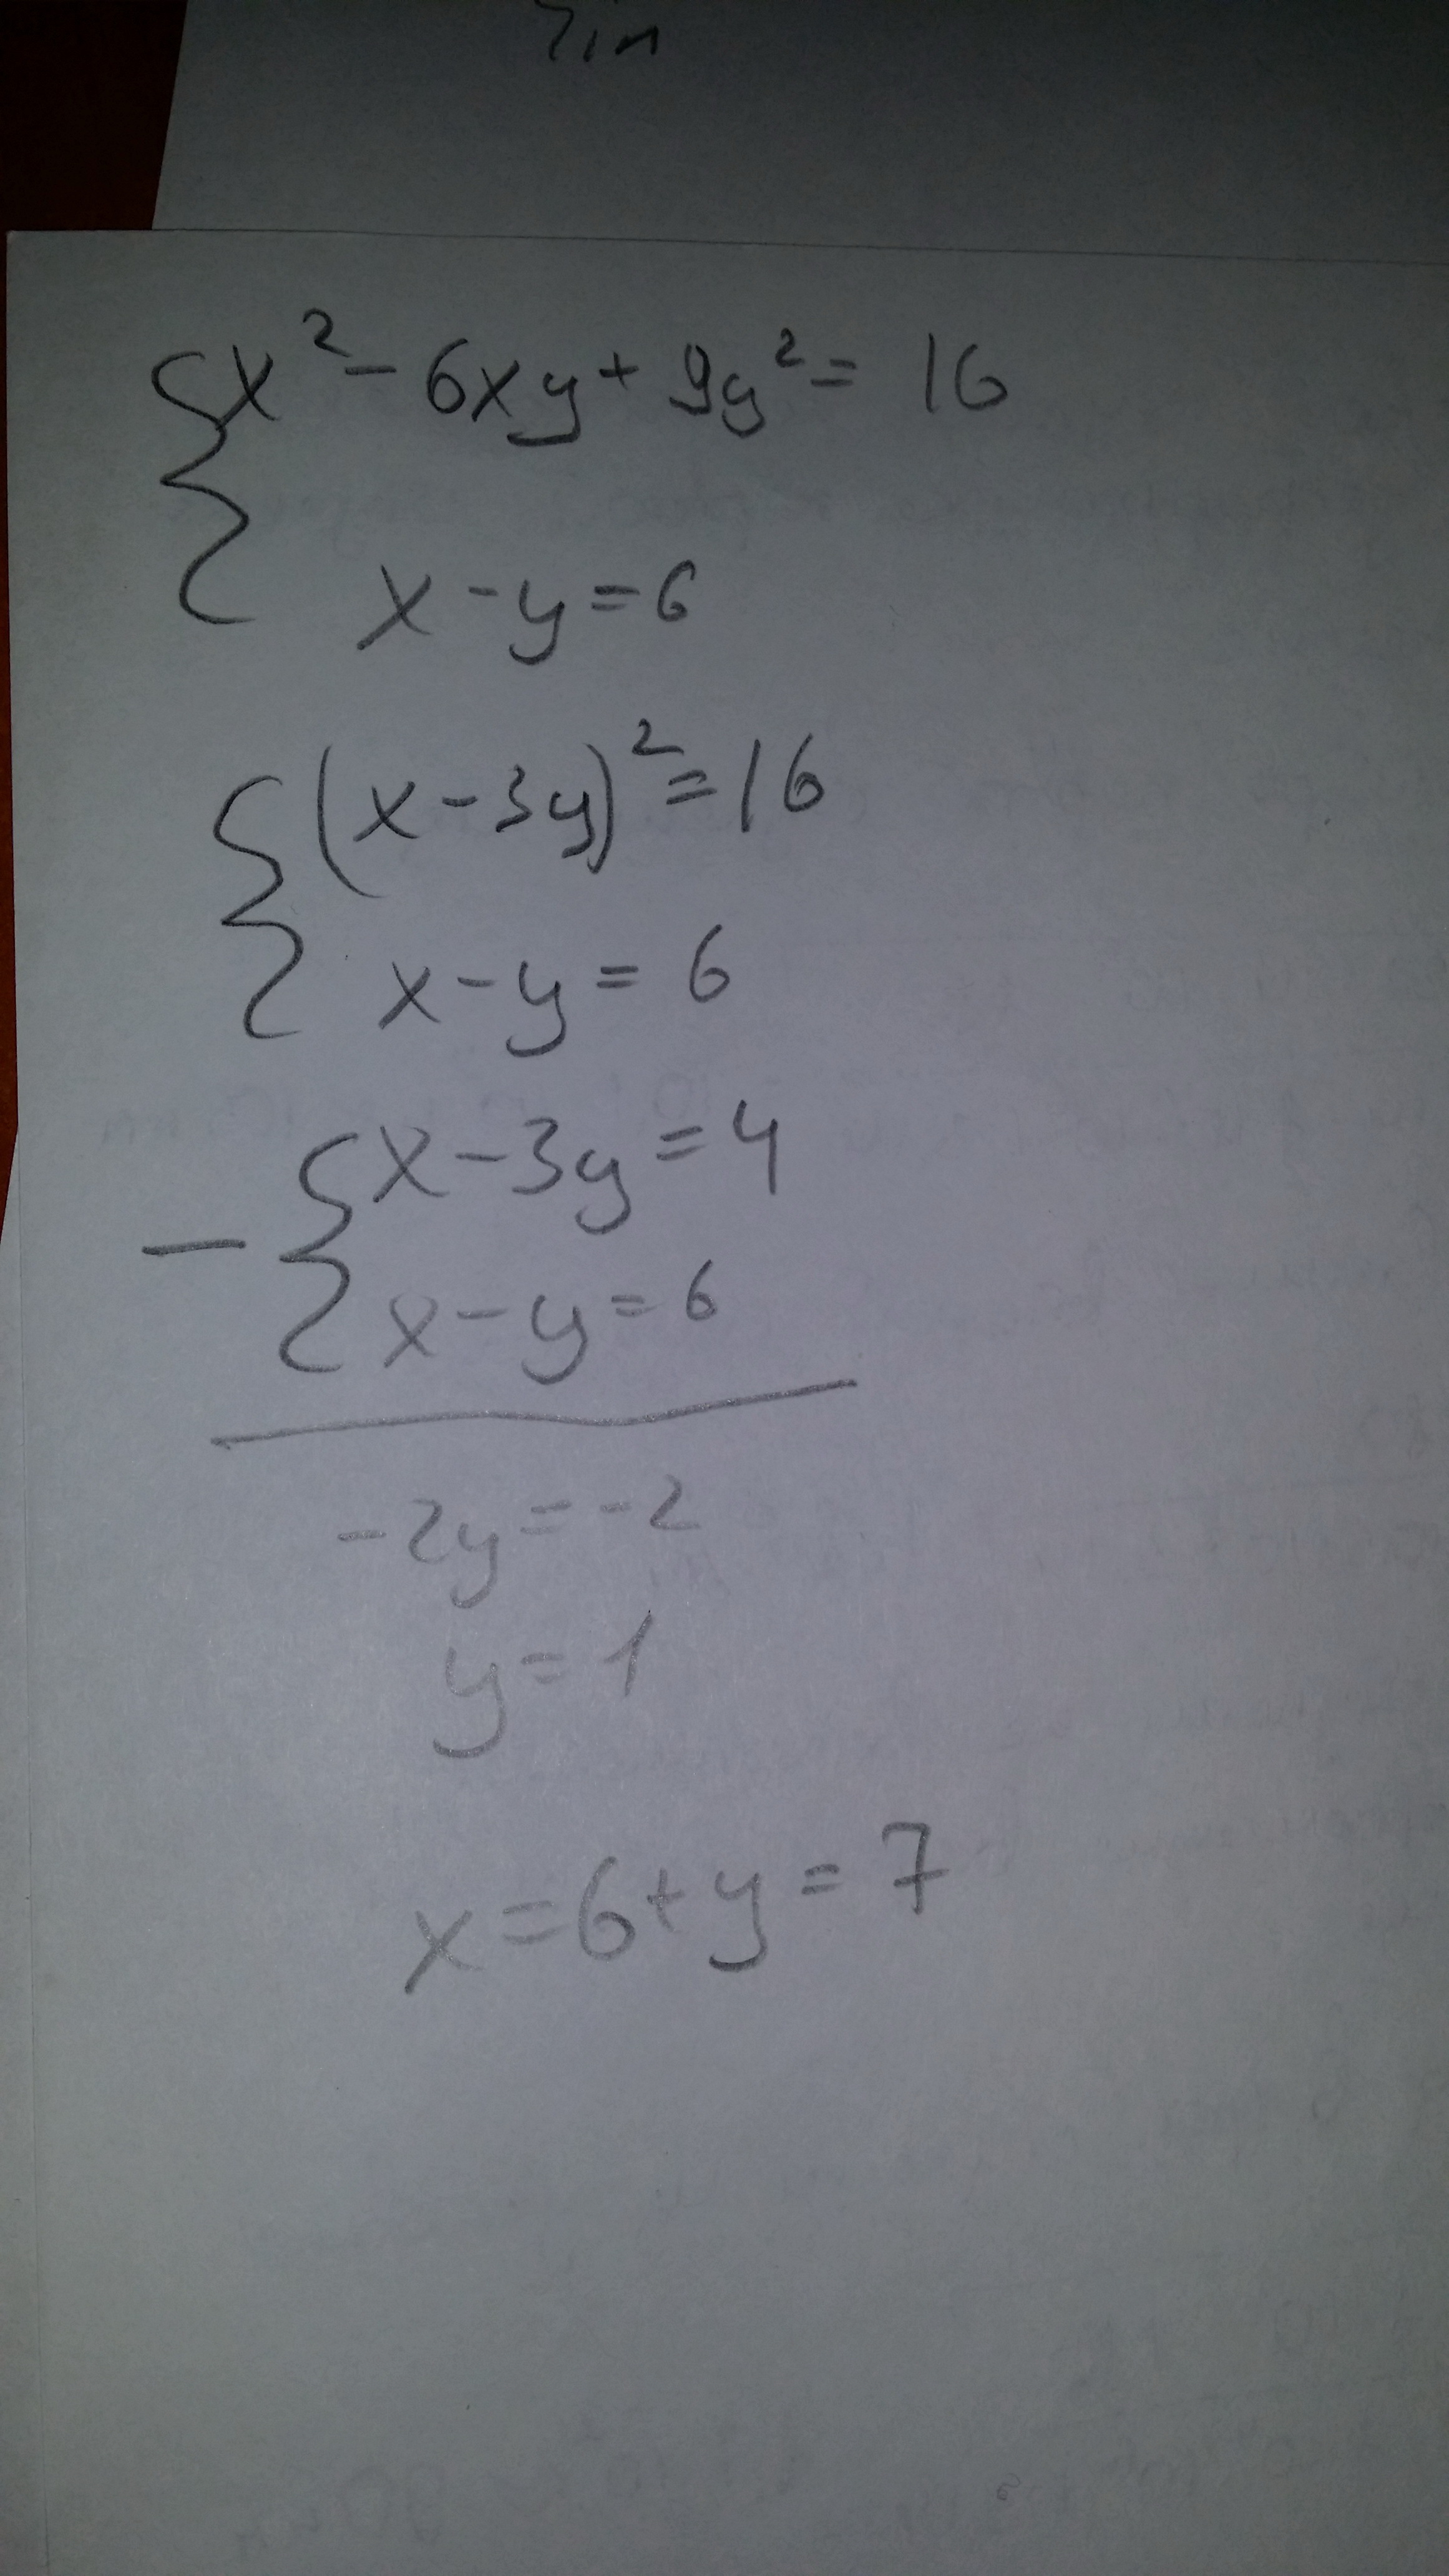 x² - 6xy + 9y² = 16
x - y = 6
(x - 3y)² = 16
x - y = 6
x - 3y = 4
x - y = 6
-2y = -2
y = 1
x = 6 + y = 7